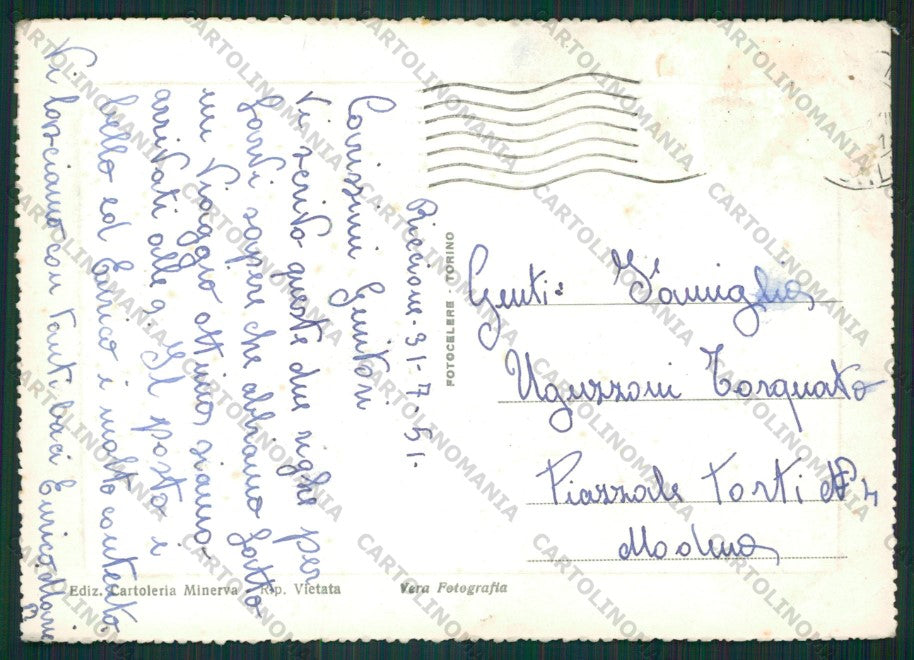 Riccione. 31-7-51.
Carissimi Genitori
Vi scrivo queste due righe per
farvi sapere che abbiamo fatto
un viaggio ottimo siamo
arrivati alle 9. Il posto è
bello ed Enrico è molto contento
Vi lasciamo con tanti baci Enrico
FOTOCELERE - TORINO
Genti: Famiglia
Uguzzoni Torquato
Piazzale Torti N° 4
Modena
Ediz. Cartoleria Minerva Rip. Vietata
Vera Fotografia
CARTOLINOMANIA